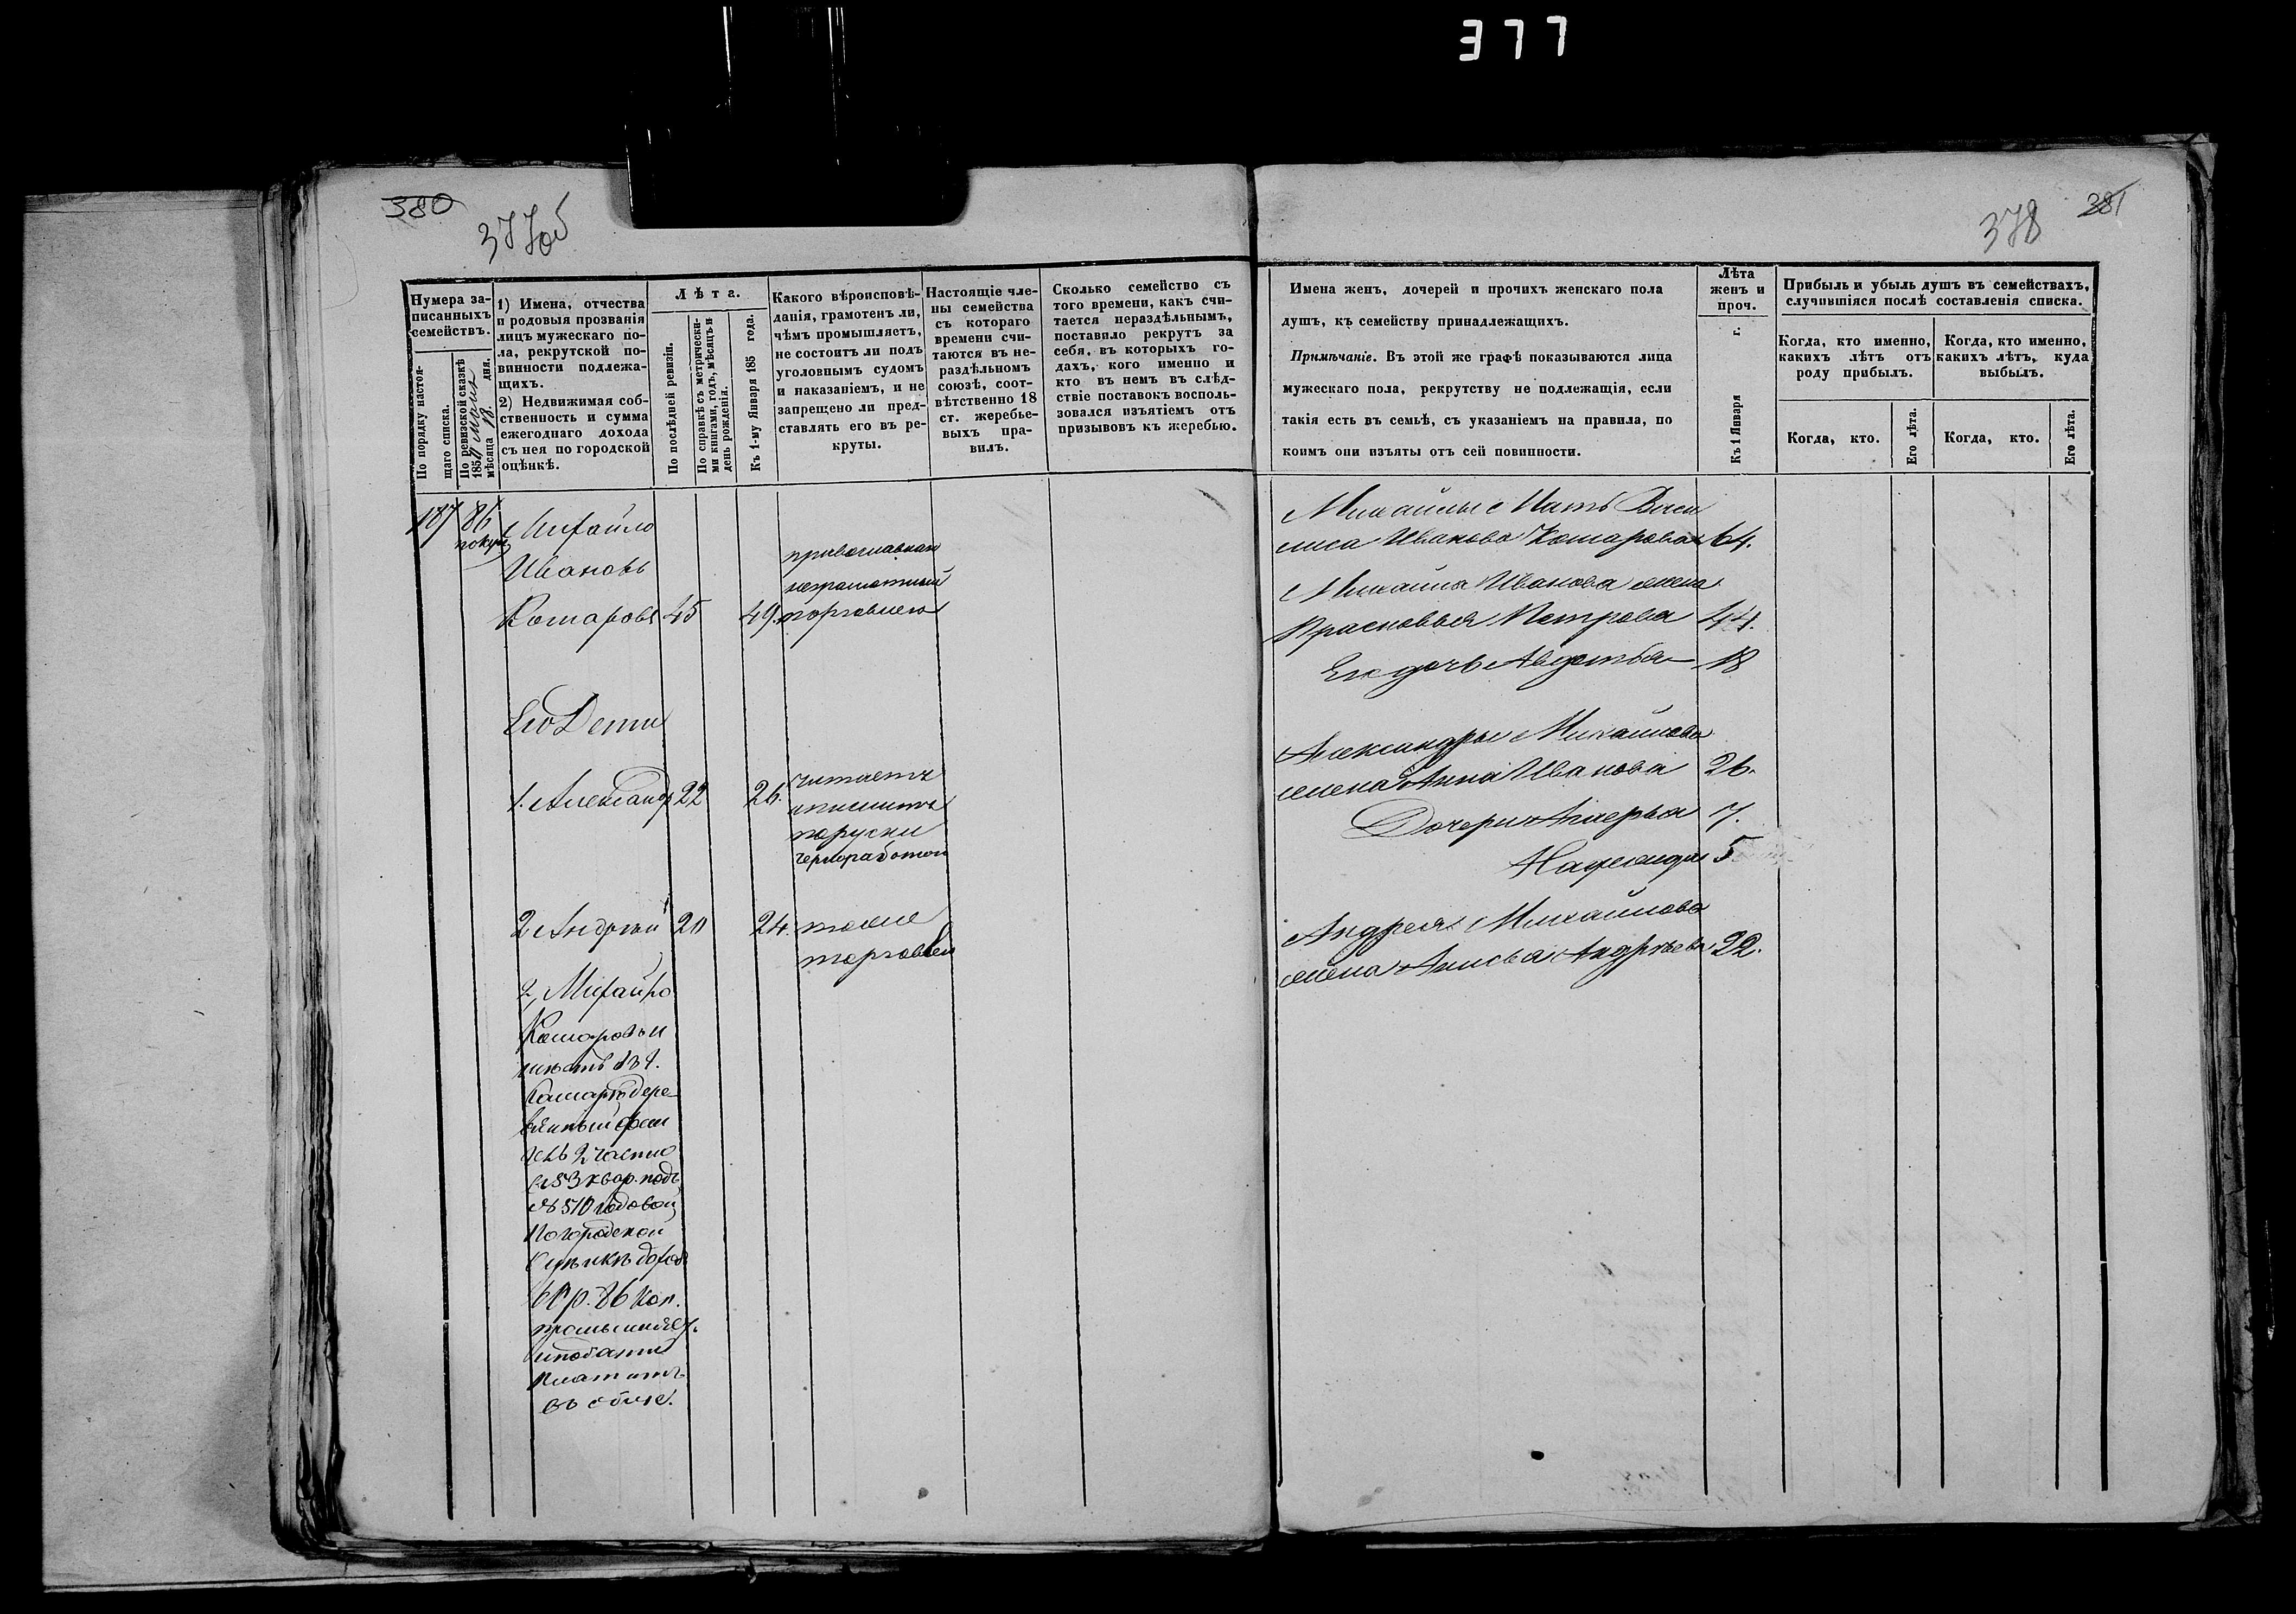 377
380
377об
378
381
Нумера за-
писанныхъ
семействъ.
По порядку настоя-
щаго списка.
По ревизской сказкѣ
1857 Маія
мѣсяца 18 дня.
1) Имена, отчества
и родовыя прозванія
лицъ мужескаго по-
ла, рекрутской по-
винности подлежа-
щихъ.
2) Недвижимая соб-
ственность и сумма
ежегоднаго дохода
съ нея по городской
оцѣнкѣ.
Лѣта.
По послѣдней ревизіи.
По справкѣ съ метрически-
ми книгами, годъ, мѣсяцъ и
день рожденія.
Къ 1-му Января 185 года.
Какого вѣроисповѣ-
данія, грамотенъ ли,
чѣмъ промышляетъ,
не состоитъ ли подъ
уголовнымъ судомъ
и наказаніемъ, и не
запрещено ли пред-
ставлять его въ ре-
круты.
Настоящіе чле-
ны семейства
съ котораго
времени счи-
таются въ не-
раздѣльномъ
союзѣ, соот-
вѣтственно 18
ст. жеребье-
выхъ пра-
вилъ.
Сколько семейство съ
того времени, какъ счи-
тается нераздѣльнымъ,
поставило рекрутъ за
себя, въ которыхъ го-
дахъ, кого именно и
кто въ немъ въ слѣд-
ствіе поставокъ восполь-
зовался изъятіемъ отъ
призывовъ къ жеребью.
187 86
Михайло
Ивановъ
Комаровъ 45 49.
православнаго
неграмотный
торговлею
Его Дети
1. Александр 22 26.
читаетъ
и пишитъ
поруски
черноработой
2 Андрей 20 24.
тоже
торговлей
2, Михайло
Комаровъ и
домъ дере-
вянный
2 части
53 квар. подъ
№ 510 годовой
по городской
оценкѣ доход
86 коп.
платитъ
Имена женъ, дочерей и прочихъ женскаго пола
душъ, къ семейству принадлежащихъ.
Примѣчаніе. Въ этой же графѣ показываются лица
мужескаго пола, рекрутству не подлежащія, если
такія есть въ семьѣ, съ указаніемъ на правила, по
коимъ они изъяты отъ сей повинности.
Лѣта
женъ и
проч.
Къ 1 Января г.
Прибыль и убыль душъ въ семействахъ,
случившіяся послѣ составленія списка.
Когда, кто именно,
какихъ лѣтъ отъ
роду прибылъ.
Когда, кто именно,
какихъ лѣтъ, куда
выбылъ.
Когда, кто.
Его лѣта.
Когда, кто.
Его лѣта.
Михайлы Мать Васи
лиса Иванова Комарова 64.
Михайла Иванова жена
Прасковья Петрова 44.
Ея дочь Авдотья 18
Александры Михайлова
жена Анна Иванова 26.
Дочери 7.
5
Андрея Михайлова
жена Анисья Андрѣева 22.